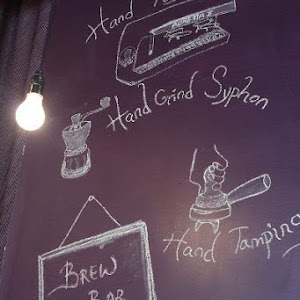 Hand
Hand Grind Syphon
Hand Tamping
BREW
BAR